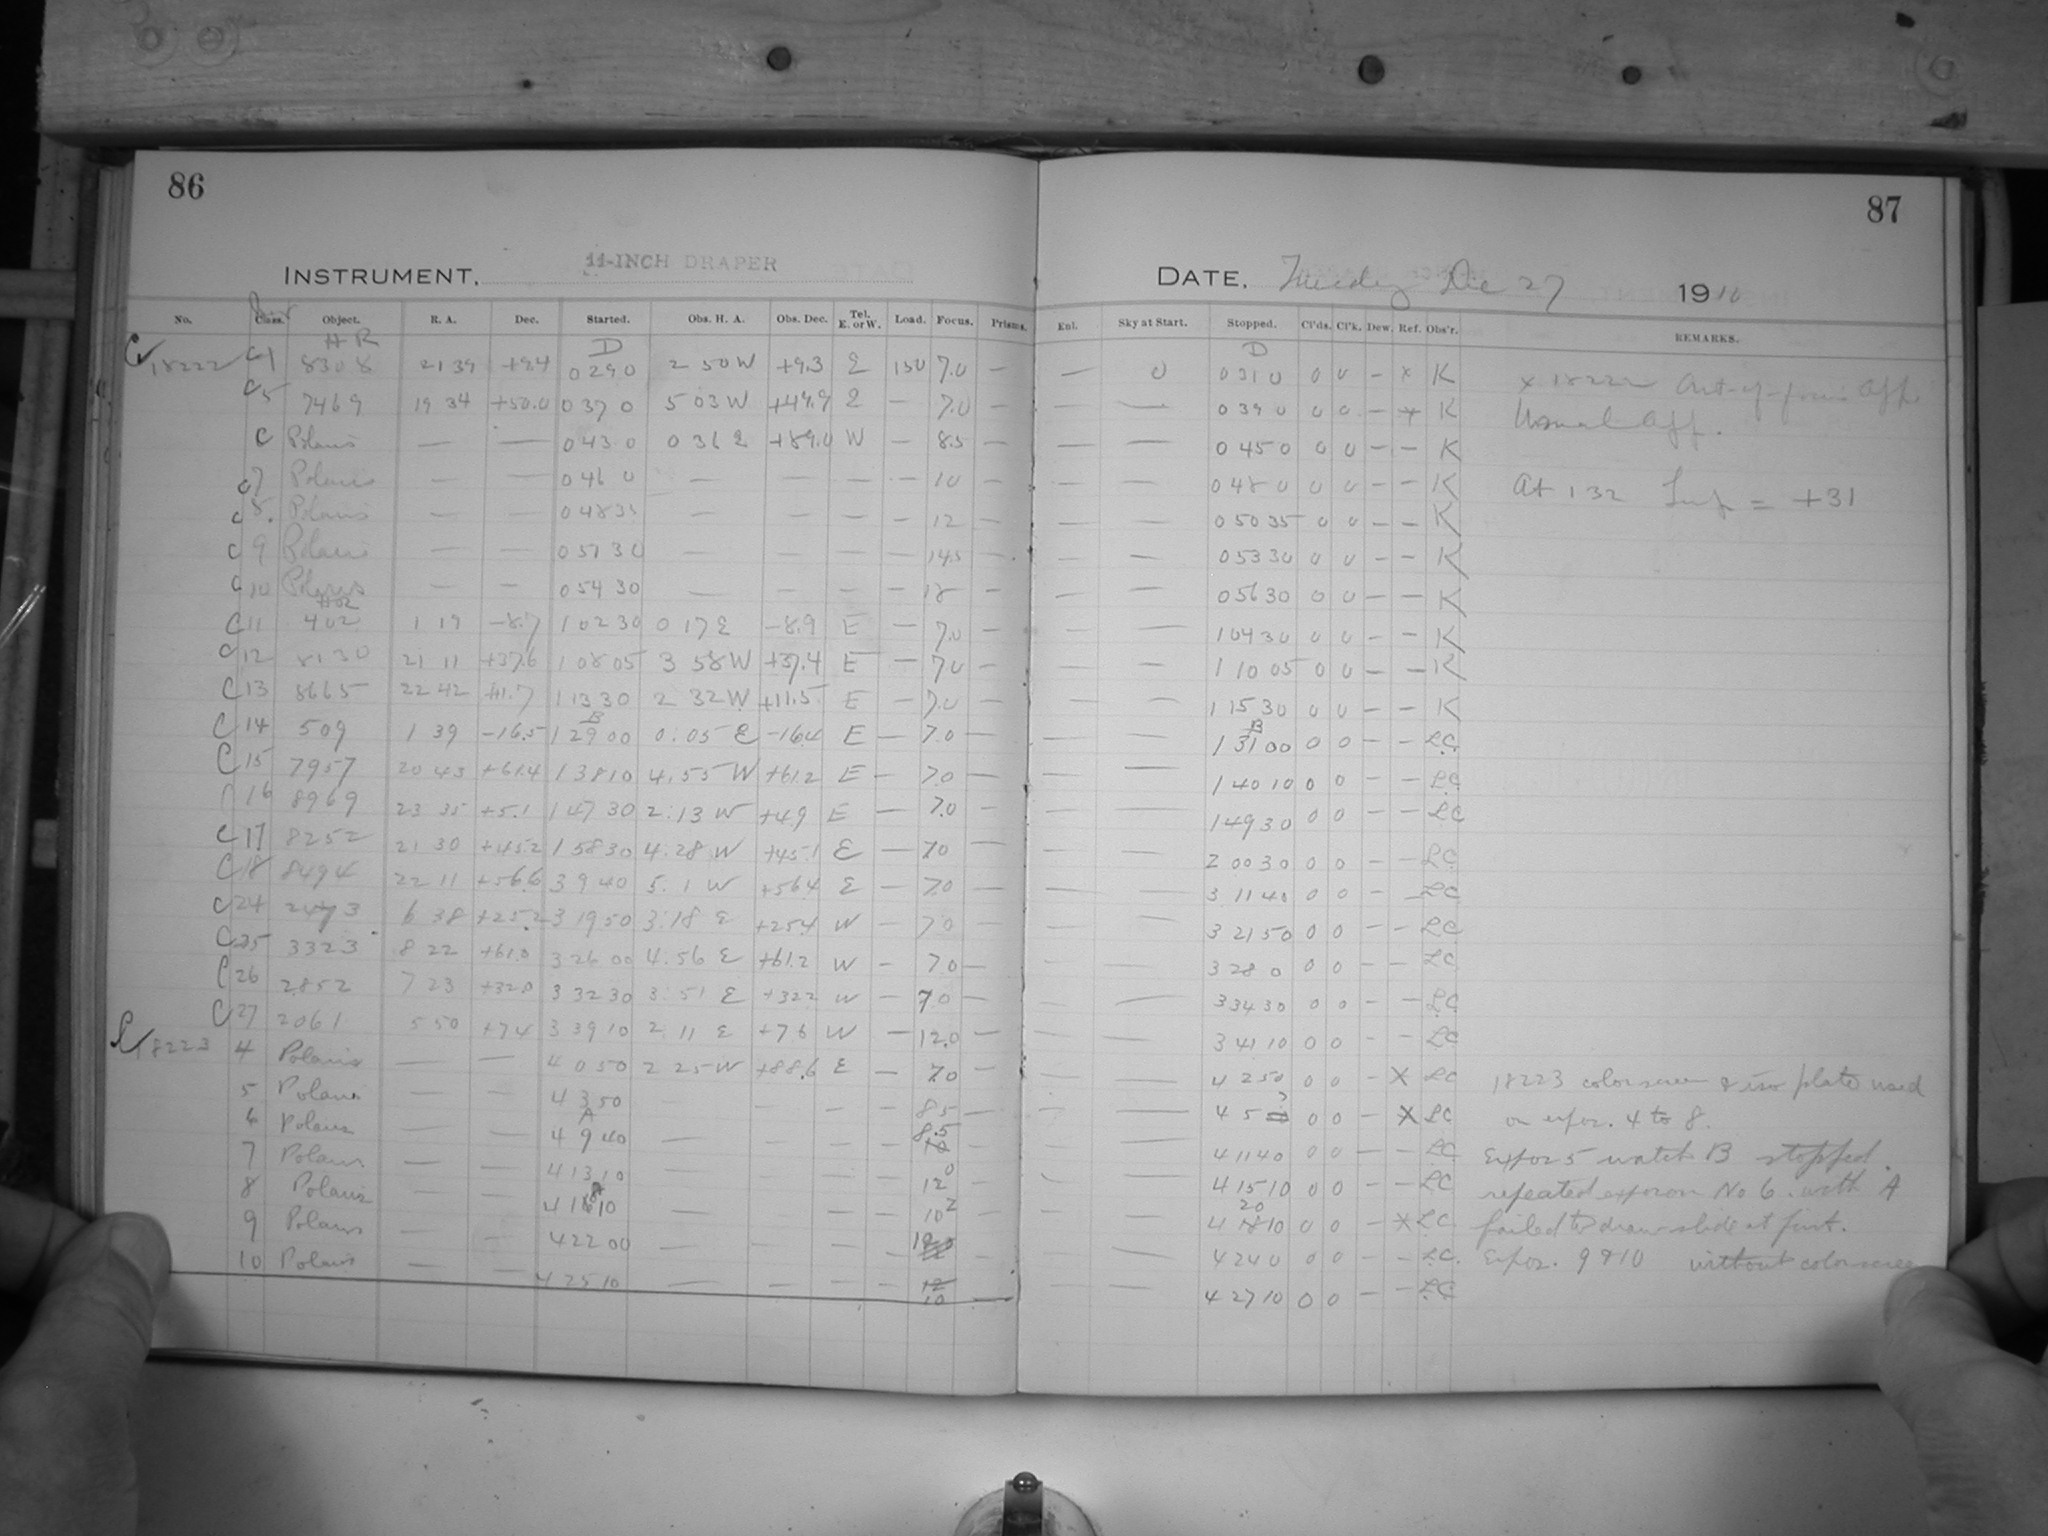 86
INSTRUMENT. 11-INCH DRAPER
No. Class. Object. R. A. Dec. Started. Obs. H. A. Obs. Dec. Tel. E. or W. Load. Focus. Prisms.
HR D
C 18222 C 1 8308 21 39 +9.4 0 29 0 2 50 W +9.3 E 150 7.0 —
C 5 7469 19 34 +50.0 0 37 0 5 03 W +49.9 E — 7.0 —
C Polaris — — 0 43 0 0 36 E +89.0 W — 8.5 —
C 7 Polaris — — 0 46 0 — — — — 10 —
C 8. Polaris — — 0 48 35 — — — — 12 —
C 9 Polaris — — 0 51 30 — — — — 14.5 —
C 10 Polaris — — 0 54 30 — — — — 18 —
C 11 402 1 19 -8.7 1 02 30 0 17 E -8.9 E — 7.0 —
C 12 8130 21 11 +37.6 1 08 05 3 58 W +37.4 E — 7.0 —
C 13 8665 22 42 +11.7 1 13 30 2 32 W +11.5 E — 7.0 —
B
C 14 509 1 39 -16.5 1 29 00 0:05 E -16.4 E — 7.0 —
C 15 7957 20 43 +61.4 1 38 10 4.55 W +61.2 E — 7.0 —
16 8969 23 35 +5.1 1 47 30 2:13 W +4.9 E — 7.0 —
C 17 8252 21 30 +45.2 1 58 30 4.28 W +45.1 E — 7.0 —
C 18 8494 22 11 +56.6 3 9 40 5.1 W +56.4 E — 7.0 —
C 24 2473 6 38 +25.2 3 19 50 3:18 E +25.4 W — 7.0
C 25 3323 8 22 +61.0 3 26 00 4.56 E +61.2 W — 7.0 —
C 26 2852 7 23 +32.0 3 32 30 3:51 E +32.2 W — 7.0 —
C 27 2061 5 50 +7.4 3 39 10 2:11 E +7.6 W — 12.0 —
18223 4 Polaris — — 4 0 50 2 25 W +88.6 E — 7.0
5 Polaris — — 4 3 50 — — — — 8.5 —
A
6 Polaris — — 4 9 40 — — — — 8.5
7 Polaris — — 4 13 10 — — — — 12
8 Polaris — — 4 18 10 — — — — 10
9 Polaris — — 4 22 00 — — — —
10 Polaris — — 4 25 10 — — — — 12 —
10
87
DATE. Tuesday Dec 27 1910
Enl. Sky at Start. Stopped. Cl'ds. Cl'k. Dew. Ref. Obs'r. REMARKS.
D
— 0 0 31 0 0 0 — x K x 18222 Out-of-focus app.
— — 0 39 0 0 0 — x K Usual app.
— — 0 45 0 0 0 — — K
— — 0 48 0 0 0 — — K At 1 32 = +31
— — 0 50 35 0 0 — — K
— — 0 53 30 0 0 — — K
— — 0 56 30 0 0 — — K
— — 1 04 30 0 0 — — K
— — 1 10 05 0 0 — — K
— — 1 15 30 0 0 — — K
B
— — 1 31 00 0 0 — — L.C.
— — 1 40 10 0 0 — — L.C
— — 1 49 30 0 0 — — LC
— — 2 00 30 0 0 — — L.C
— — 3 11 40 0 0 — — LC
— — 3 21 50 0 0 — — LC
— — 3 28 0 0 0 — — LC
— — 3 34 30 0 0 — — L.C
— — 3 41 10 0 0 — — LC
— — 4 2 50 0 0 — X LC 18223 colorscreen & iso plate used
— — 4 5 0 0 — X LC on expos. 4 to 8.
— — 4 11 40 0 0 — — LC Expos 5 watch B stopped.
— — 4 15 10 0 0 — — LC repeated expos on No 6. with A
20
— — 4 18 10 0 0 — X L.C. failed to draw slide at first.
— — 4 24 0 0 0 — — L.C. Expos. 9 & 10 without colorscreen
— — 4 27 10 0 0 — — L.C